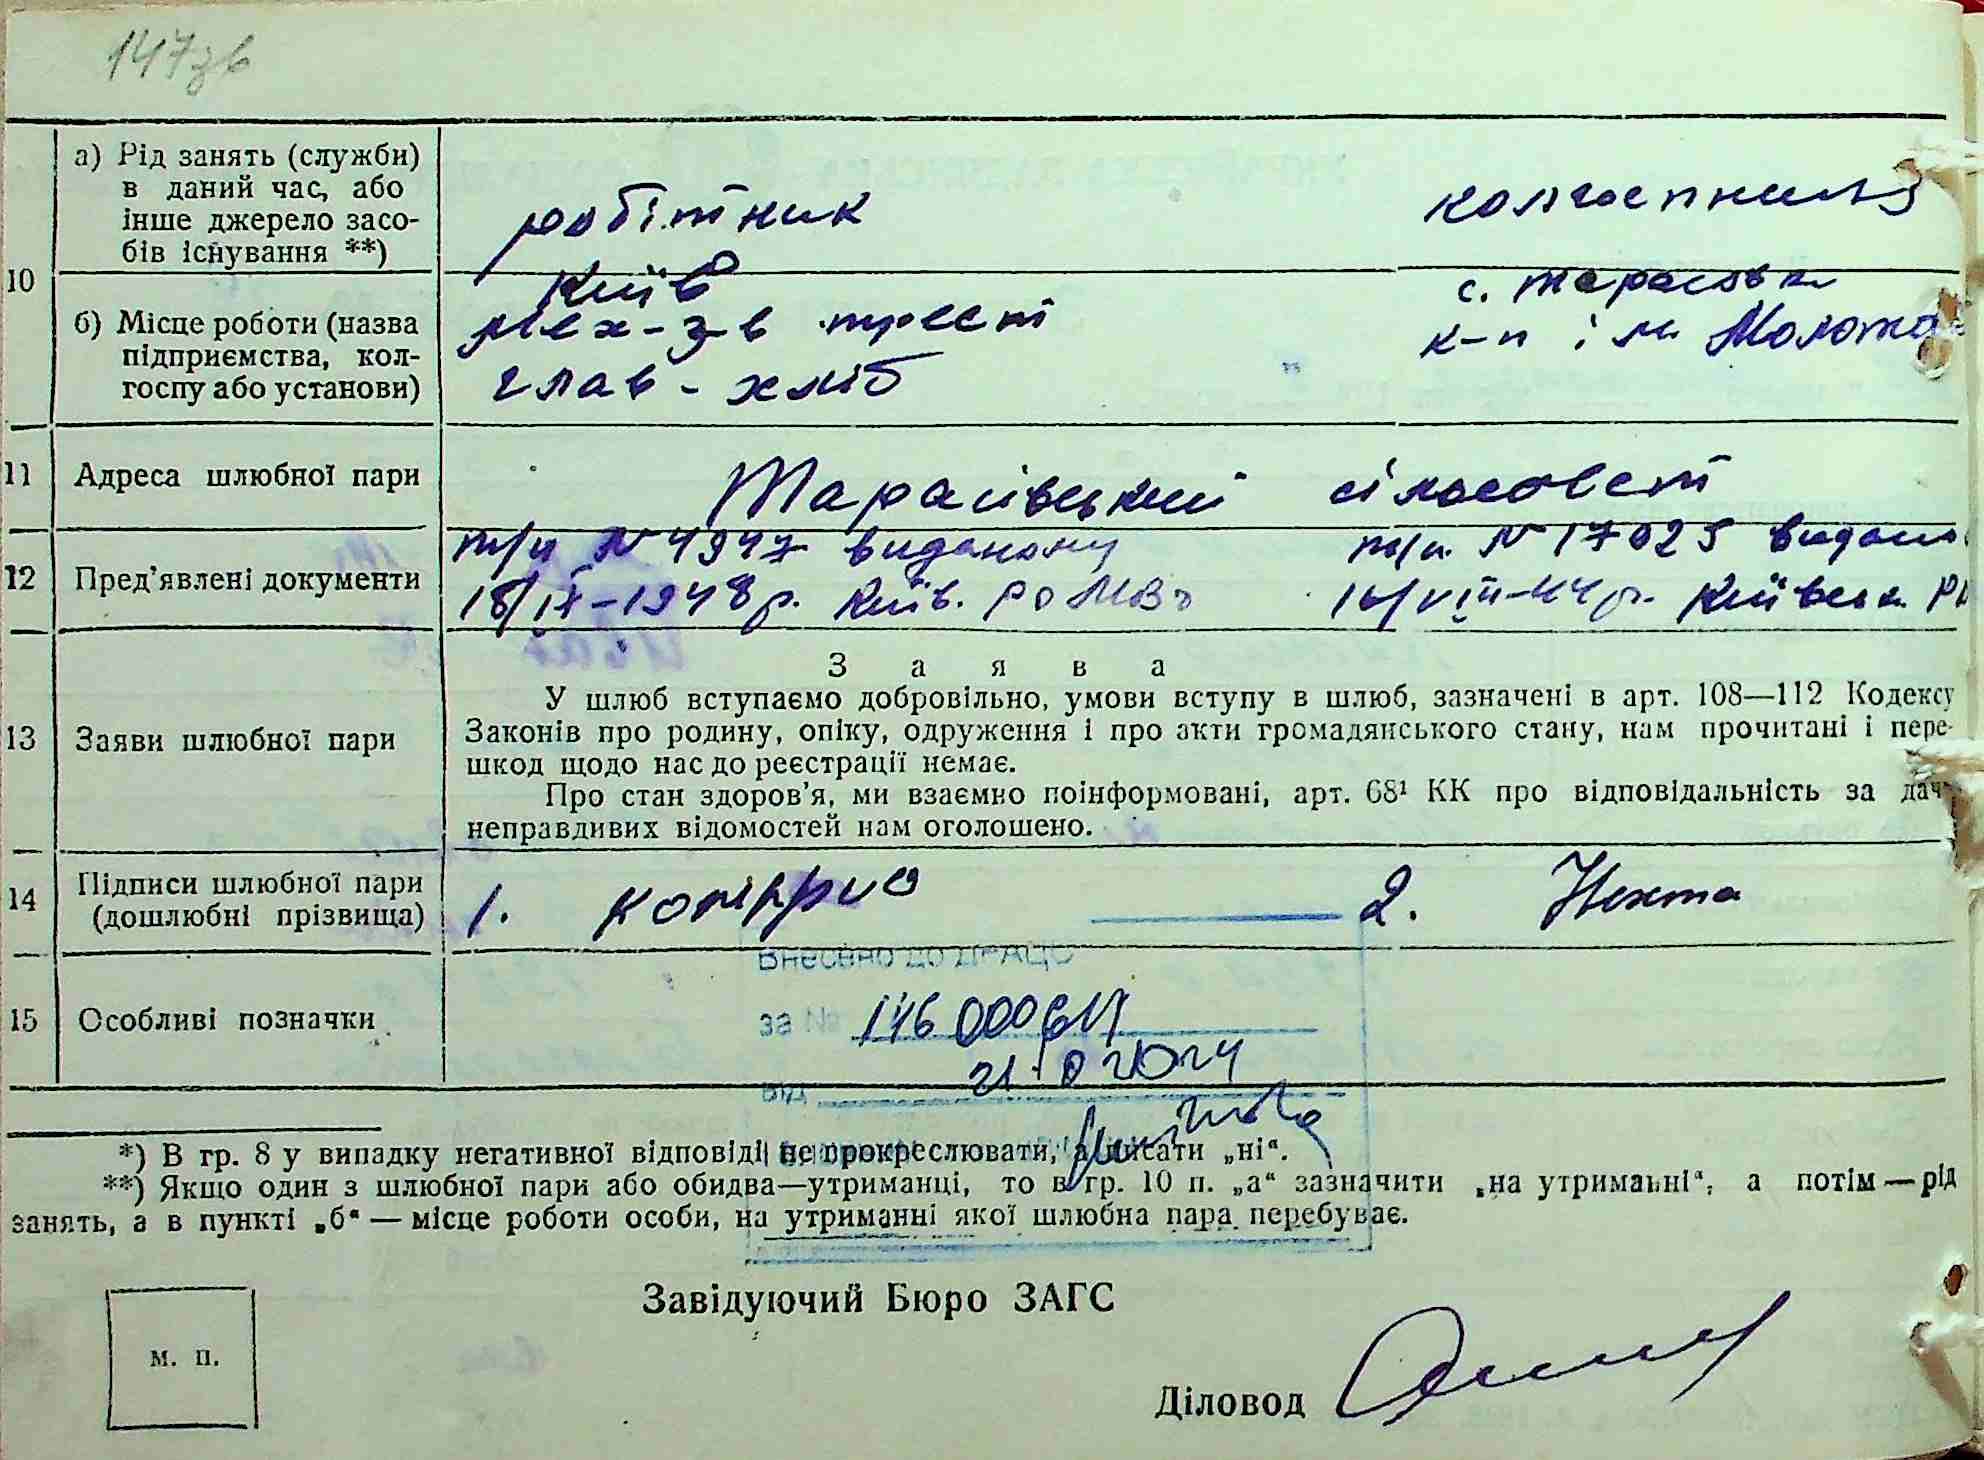 147зв
10
а) Рід занять (служби)
в даний час, або
інше джерело засо-
бів існування **)
робітник
колгоспниця
б) Місце роботи (назва
підприємства, кол-
госпу або установи)
Київ
Мех-з-в трест
глав-хліб
с. Тарасовка
к-п ім Молото
11 Адреса шлюбної пари
Тарасівський сільсовєт
12 Пред’явлені документи
п/п N 4947 виданому
18/IX-1948 р. Київ. РоМВ
п/п. N 17025 видано
16/VIII-44 р. Київськ.
13 Заяви шлюбної пари
Заява
У шлюб вступаємо добровільно, умови вступу в шлюб, зазначені в арт. 108—112 Кодексу
Законів про родину, опіку, одруження і про акти громадянського стану, нам прочитані і пере-
шкод щодо нас до реєстрації немає.
Про стан здоров’я, ми взаємно поінформовані, арт. 68¹ КК про відповідальність за дачу
неправдивих відомостей нам оголошено.
14 Підписи шлюбної пари
(дошлюбні прізвища)
1.
2. Нехта
15 Особливі позначки
Внесено до ДРАЦС
за №
від
*) В гр. 8 у випадку негативної відповіді не прокреслювати, а писати „ні“.
**) Якщо один з шлюбної пари або обидва—утриманці, то в гр. 10 п. „а“ зазначити „на утриманні“, а потім—рід
занять, а в пункті „б“ — місце роботи особи, на утриманні якої шлюбна пара перебуває.
Завідуючий Бюро ЗАГС
м. п.
Діловод